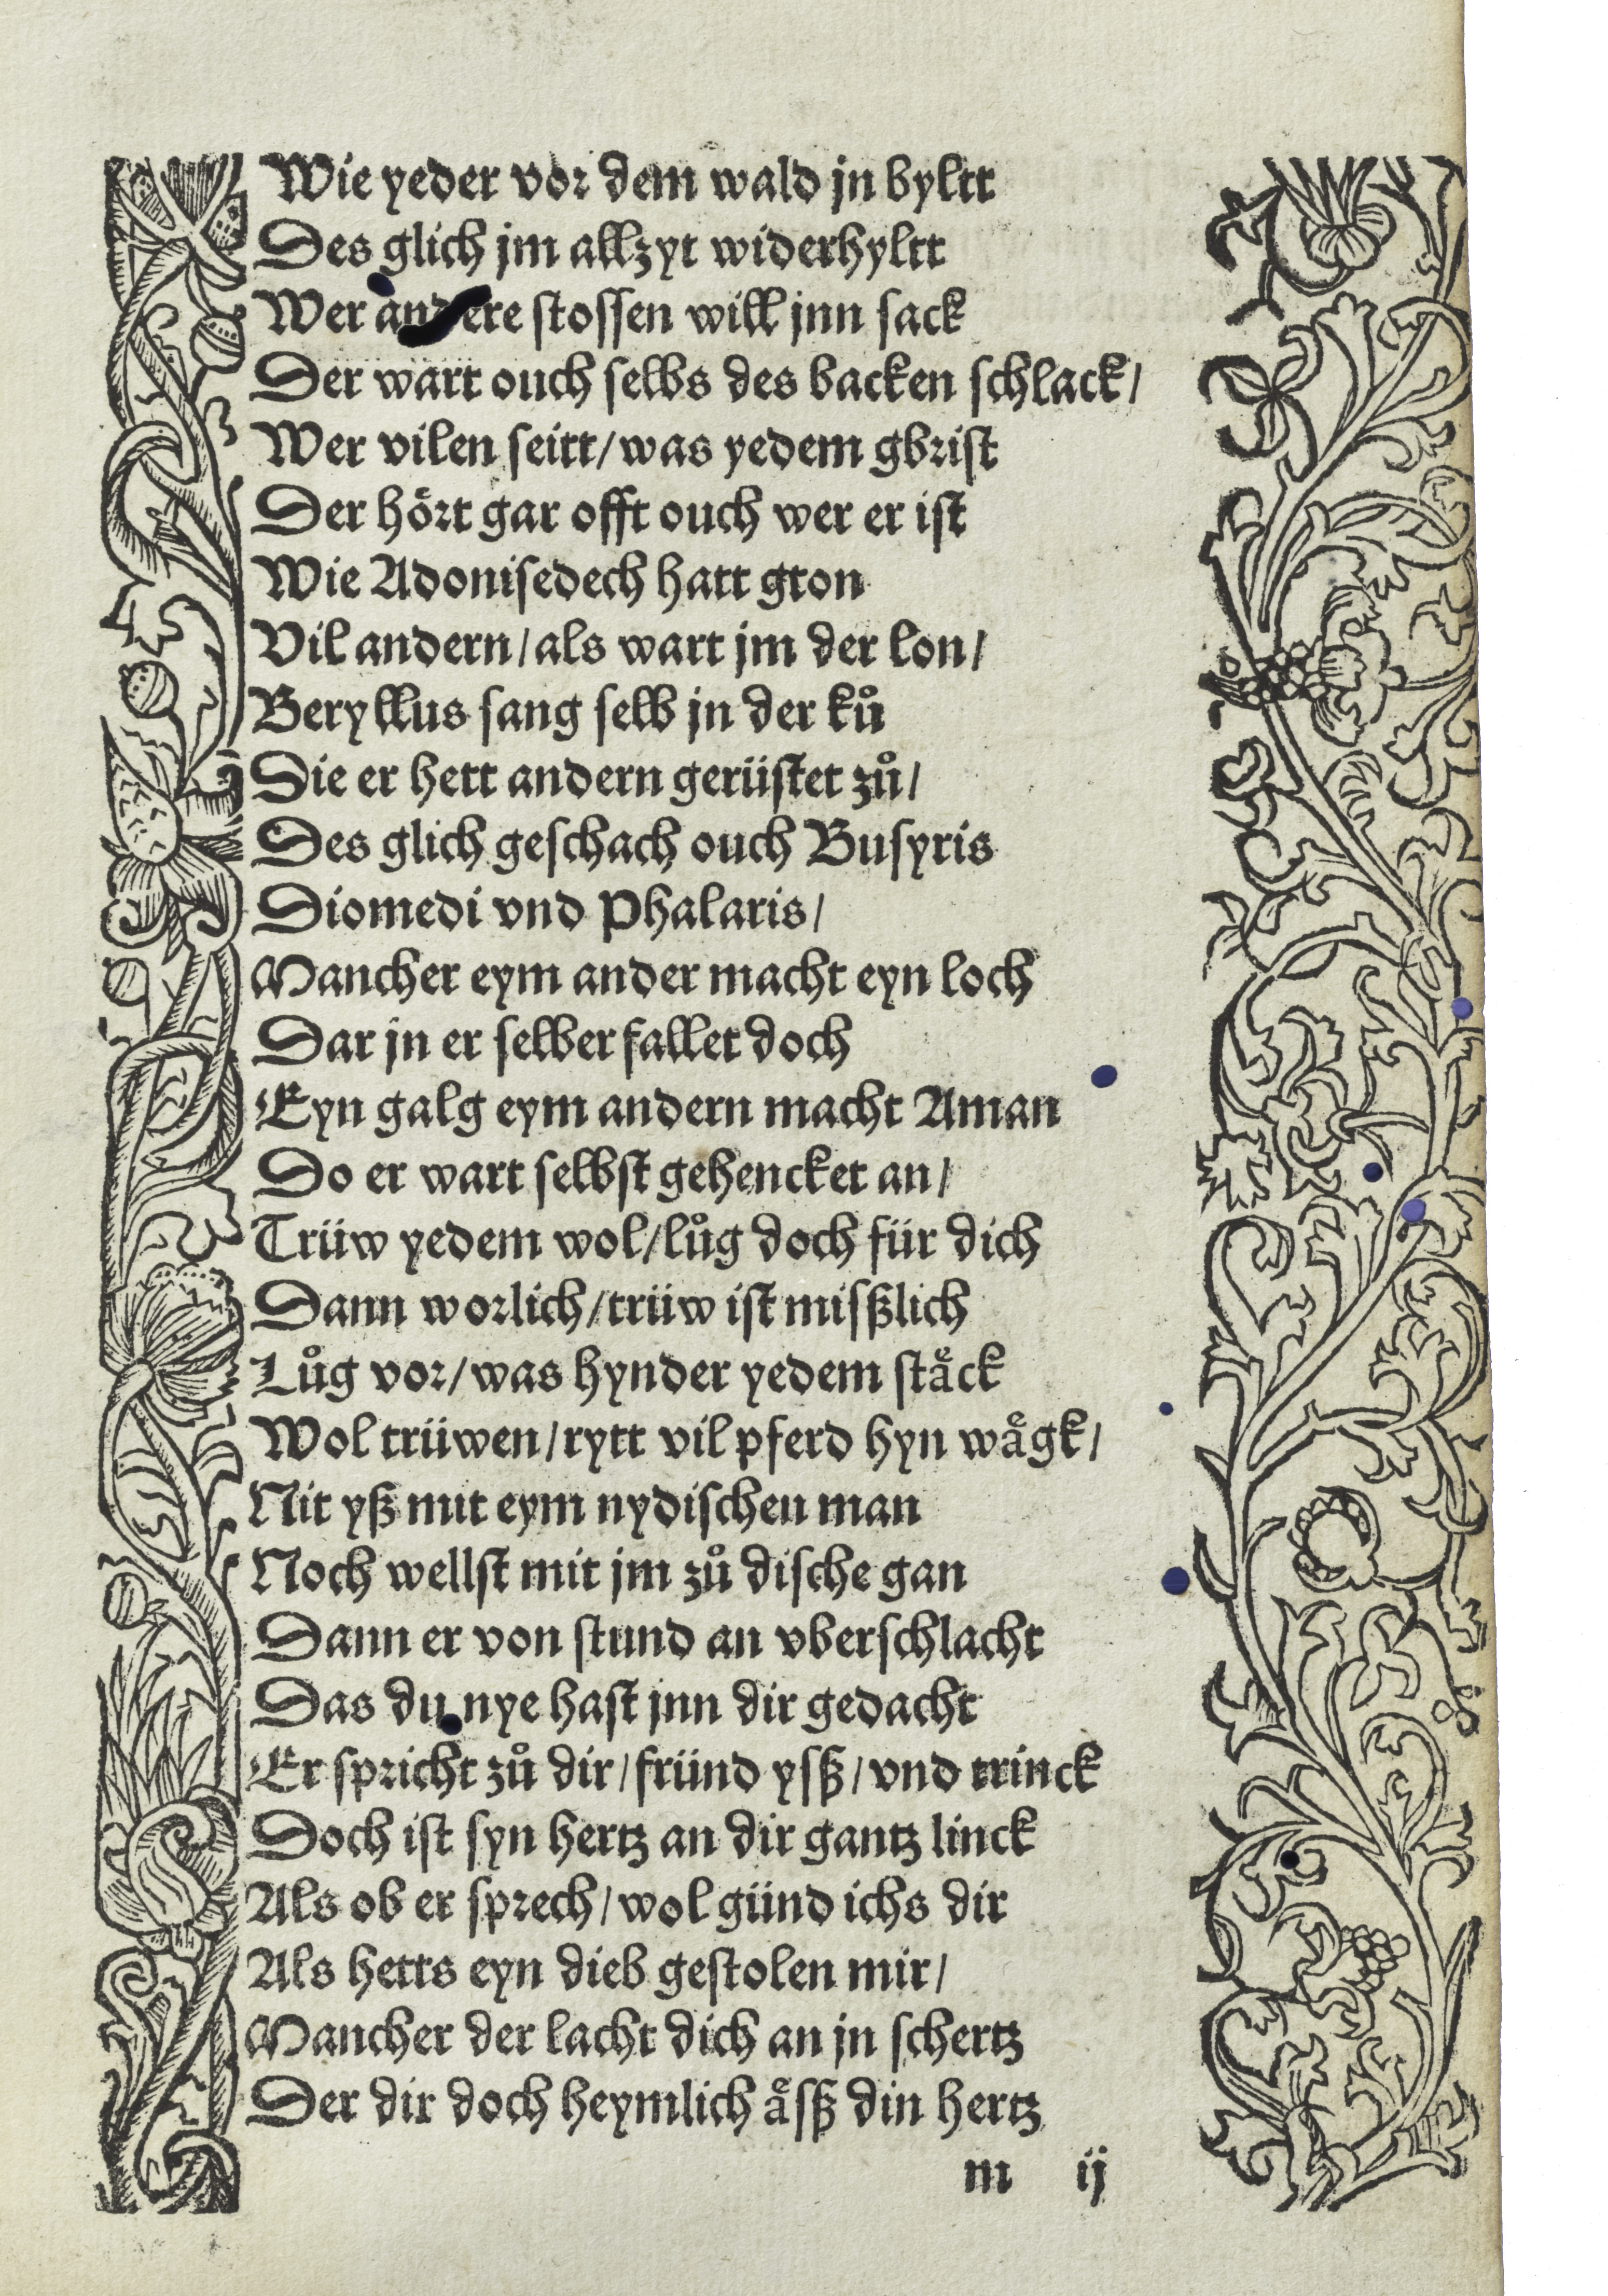 Wie yeder vor dem wald jn byltt
Des glich jm allzyt widerhyltt
Wer andere stossen will jnn sack
Der wart ouch selbs des backen schlack/
Wer vilen seitt/ was yedem gbrist
Der hoͤrt gar offt ouch wer er ist
Wie Adonisedech hatt gton
Vil andern/ als wart jm der lon/
Beryllus sang selb jn der kuͦ
Die er hett andern gerüstet zuͦ/
Des glich geschach ouch Busyris
Diomedi vnd Phalaris/
Mancher eym ander macht eyn loch
Dar jn er selber fallet doch
Eyn galg eym andern macht Aman
Do er wart selbst gehencket an/
Trüw yedem wol/ luͦg doch für dich
Dann worlich/ trüw ist mißlich
Luͦg vor/ was hynder yedem staͤck
Wol trüwen/ rytt vil pferd hyn waͤgk/
Nit yß mit eym nydischen man
Noch wellst mit jm zuͦ dische gan
Dann er von stund an vberschlacht
Das du nye hast jnn dir gedacht
Er spricht zuͦ dir/ fründ ysß/ vnd trinck
Doch ist syn hertz an dir gantz linck
Als ob er sprech/ wol günd ichs dir
Als hetts eyn dieb gestolen mir/
Mancher der lacht dich an jn schertz
Der dir doch heymlich aͤsß din hertz
m ij